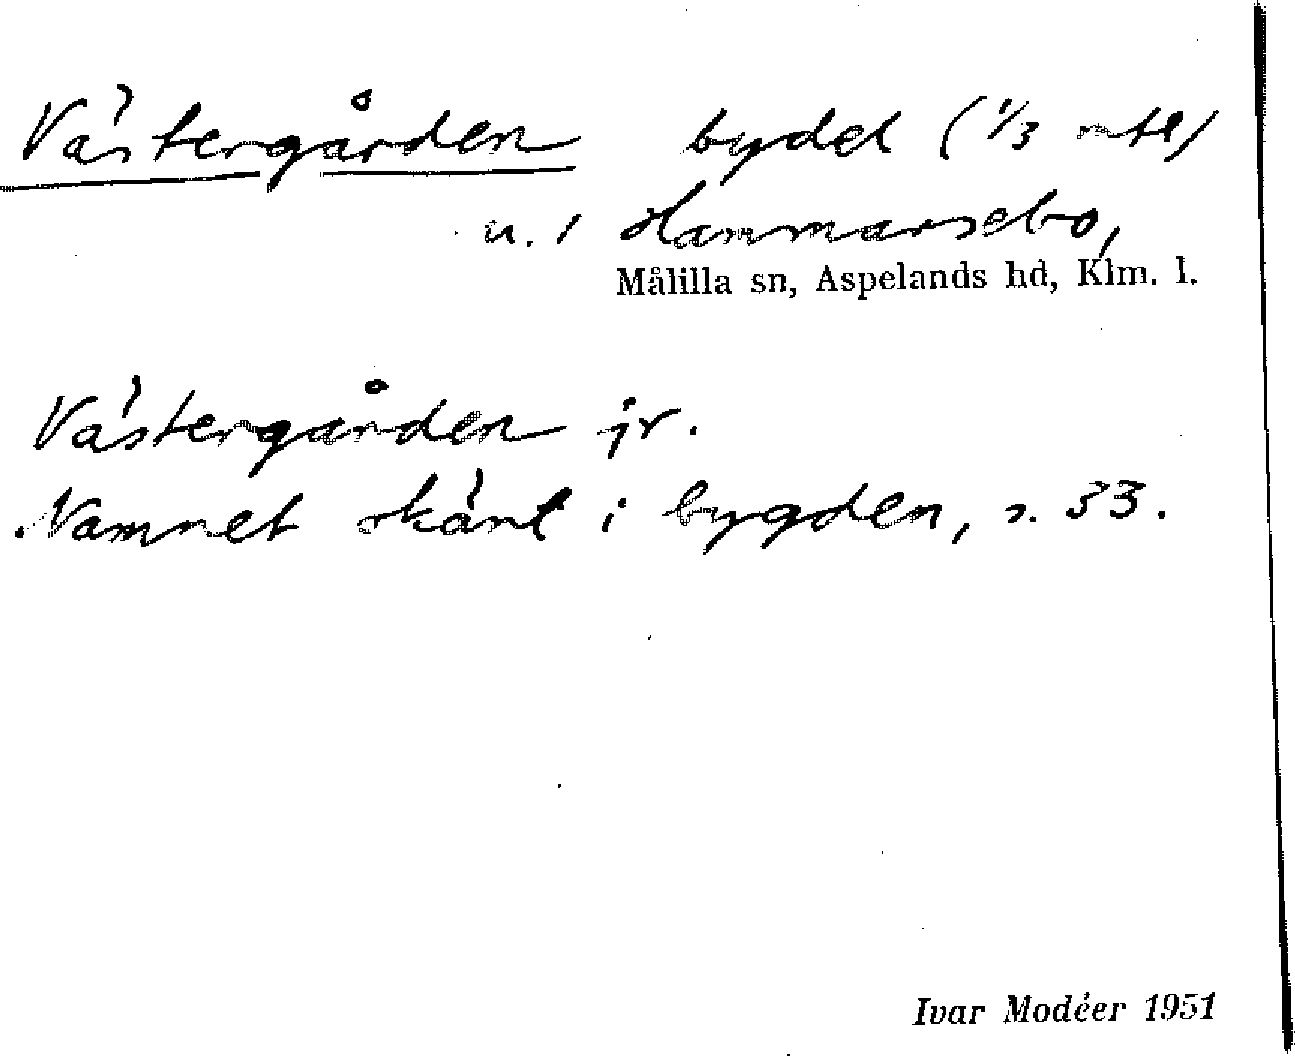 Västergården bydel (1/3 mtl)
u. 1 Hammarsebo,
Målilla sn, Aspelands hd, Klm. l.
Västergården jr.
Namnet känt i bygden, s. 33.
Ivar Modéer 1951